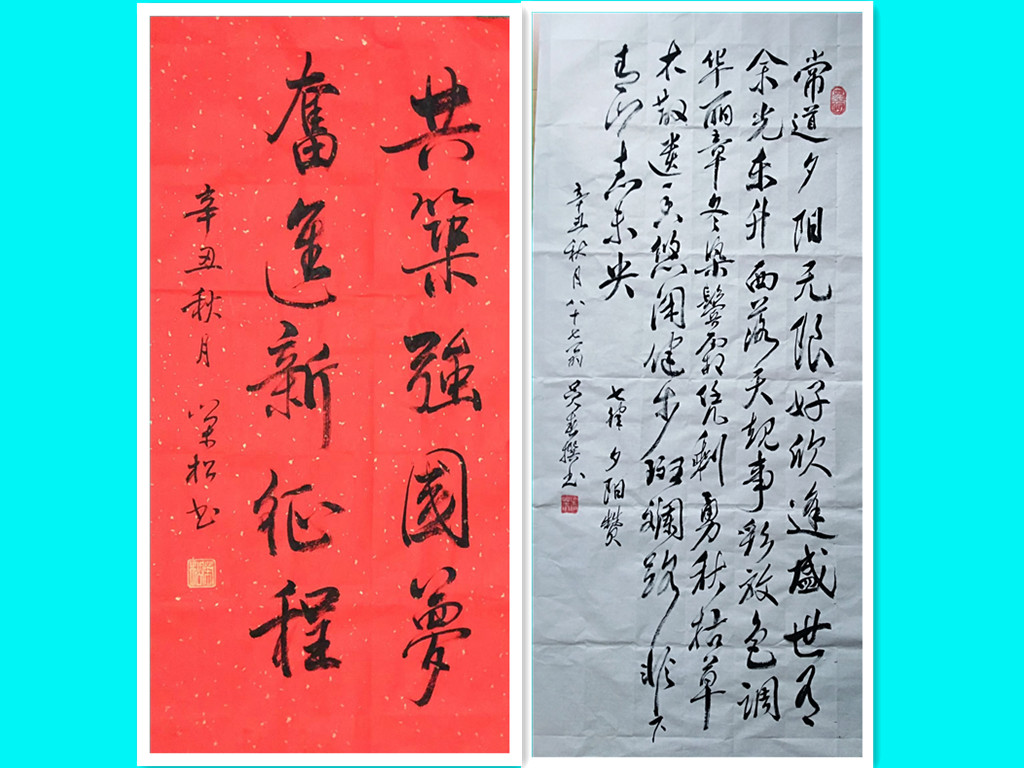 共築強國夢
奮進新征程
辛丑秋月 榮松书
常道夕阳无限好欣逢盛世有
余光东升西落天事彩放色调
华丽章冬染鬓霜凭剩勇秋枯草
木散遗香悠闲健步斑斓路非下
青山志未央
七律 夕阳赞
辛丑秋月八十七翁 吴春撰书